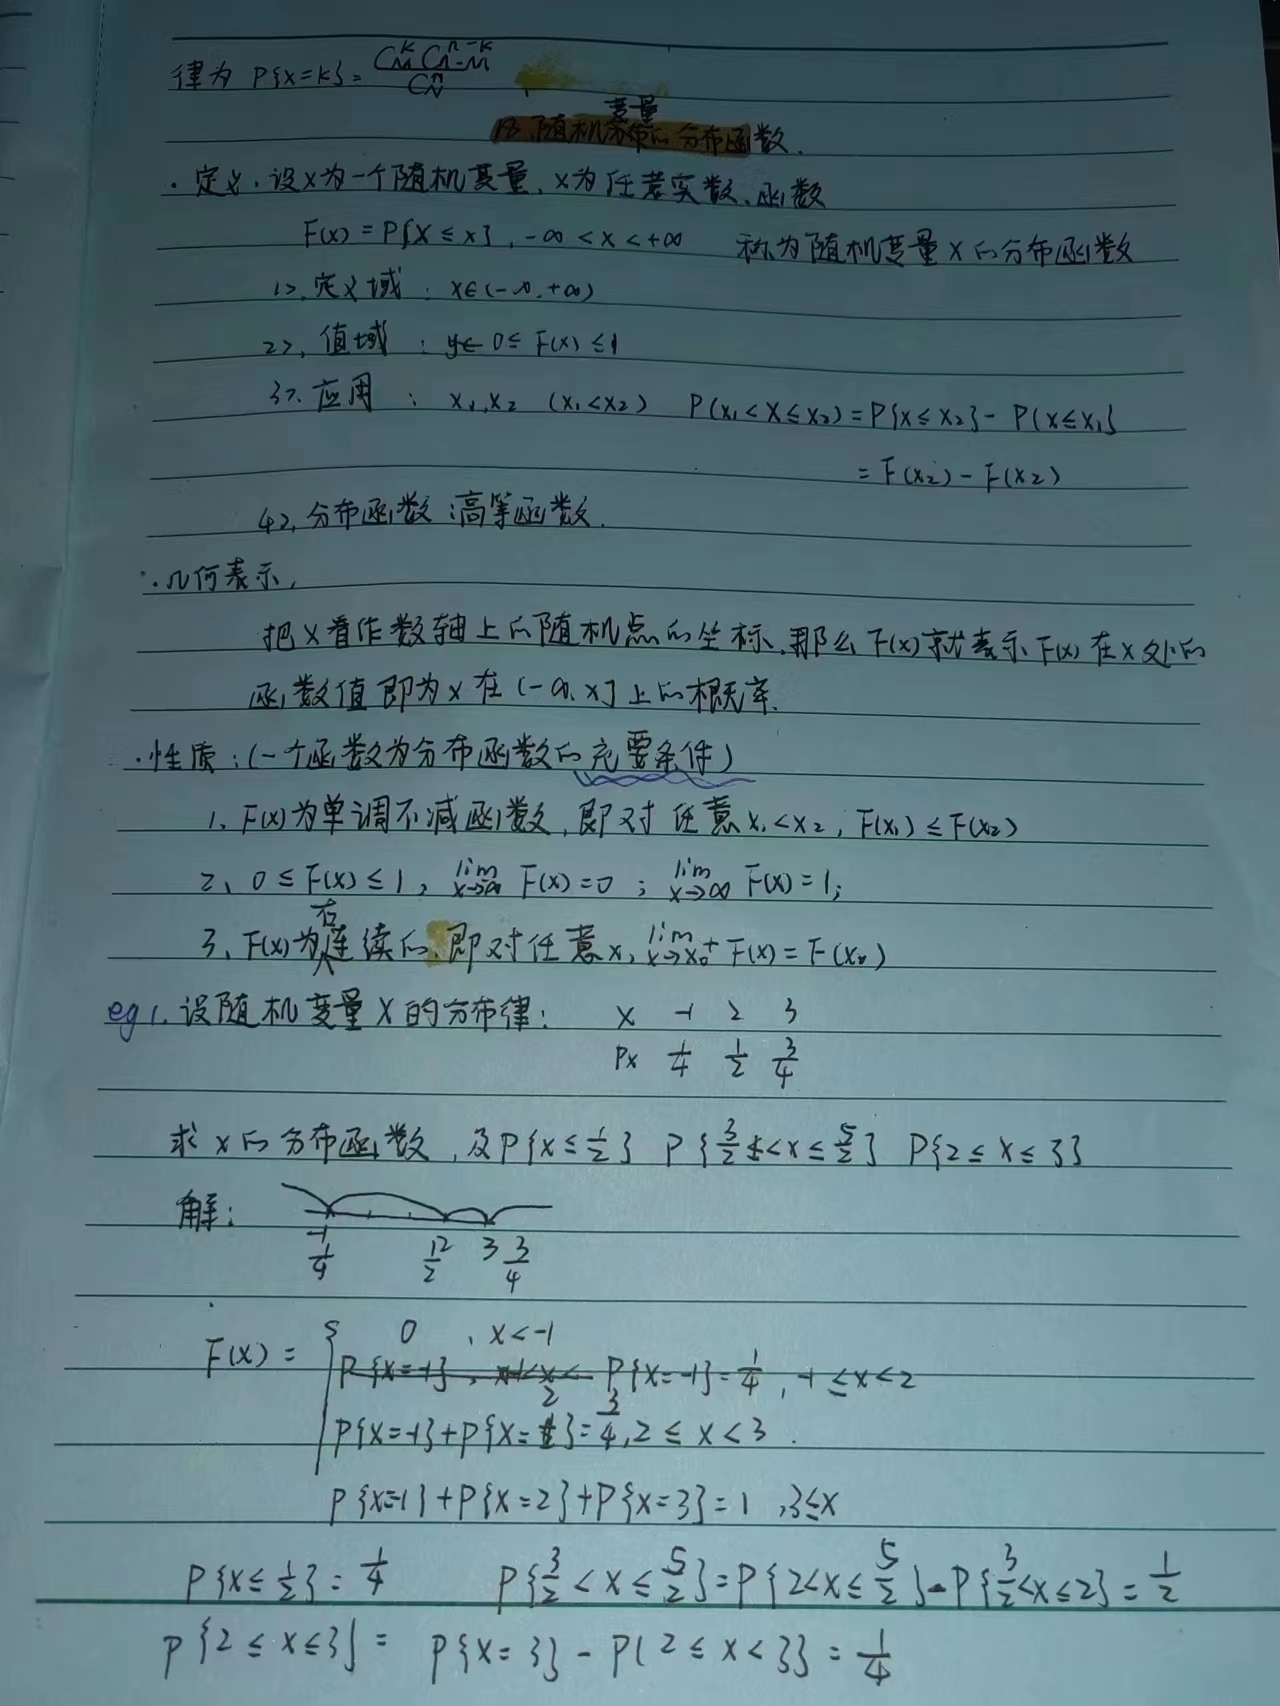 律为 P{X=K}= C_M^K C_{N-M}^{n-K} / C_N^n
18、随机变量的分布函数.
· 定义.设X为一个随机变量、x为任意实数、函数
F(x) = P{X ≤ x}, -∞ < x < +∞ 称为随机变量X的分布函数
1>.定义域 : x∈(-∞,+∞)
2>.值域 : y∈ 0 ≤ F(x) ≤ 1
3>.应用 : x₁,x₂ (x₁<x₂) P(x₁<X≤x₂)=P{X≤x₂}-P(X≤x₁}
= F(x₂) - F(x₂)
4>.分布函数:高等函数.
·几何表示,
把X看作数轴上的随机点的坐标.那么F(x)就表示F(x)在x处的
函数值即为x在(-∞.x]上的概率.
·性质:(一个函数为分布函数的充要条件)
1、F(x)为单调不减函数,即对任意x₁<x₂, F(x₁) ≤ F(x₂)
2、0 ≤ F(x) ≤ 1, lim x→-∞ F(x)=0 ; lim x→∞ F(x)=1;
3、F(x)为右连续的.即对任意x₀ lim x→x₀⁺ F(x)=F(x₀)
eg1.设随机变量X的分布律: X -1 2 3
Px 1/4 1/2 3/4
求X的分布函数,及P{X≤1/2} P{3/2<X≤5/2} P{2≤X≤3}
解:
-1 2 3
1/4 1/2 3/4
F(x) = { 0 , x<-1
P{X=-1}=1/4, -1≤x<2
P{X=-1}+P{X=2}=3/4, 2≤x<3.
P{X=1}+P{X=2}+P{X=3}=1 ,3≤x
P{X≤1/2}=1/4 P{3/2<X≤5/2}=P{2<X≤5/2}-P{3/2<X≤2}=1/2
P{2≤X≤3}= P{X=3}-P{2≤X<3}=1/4